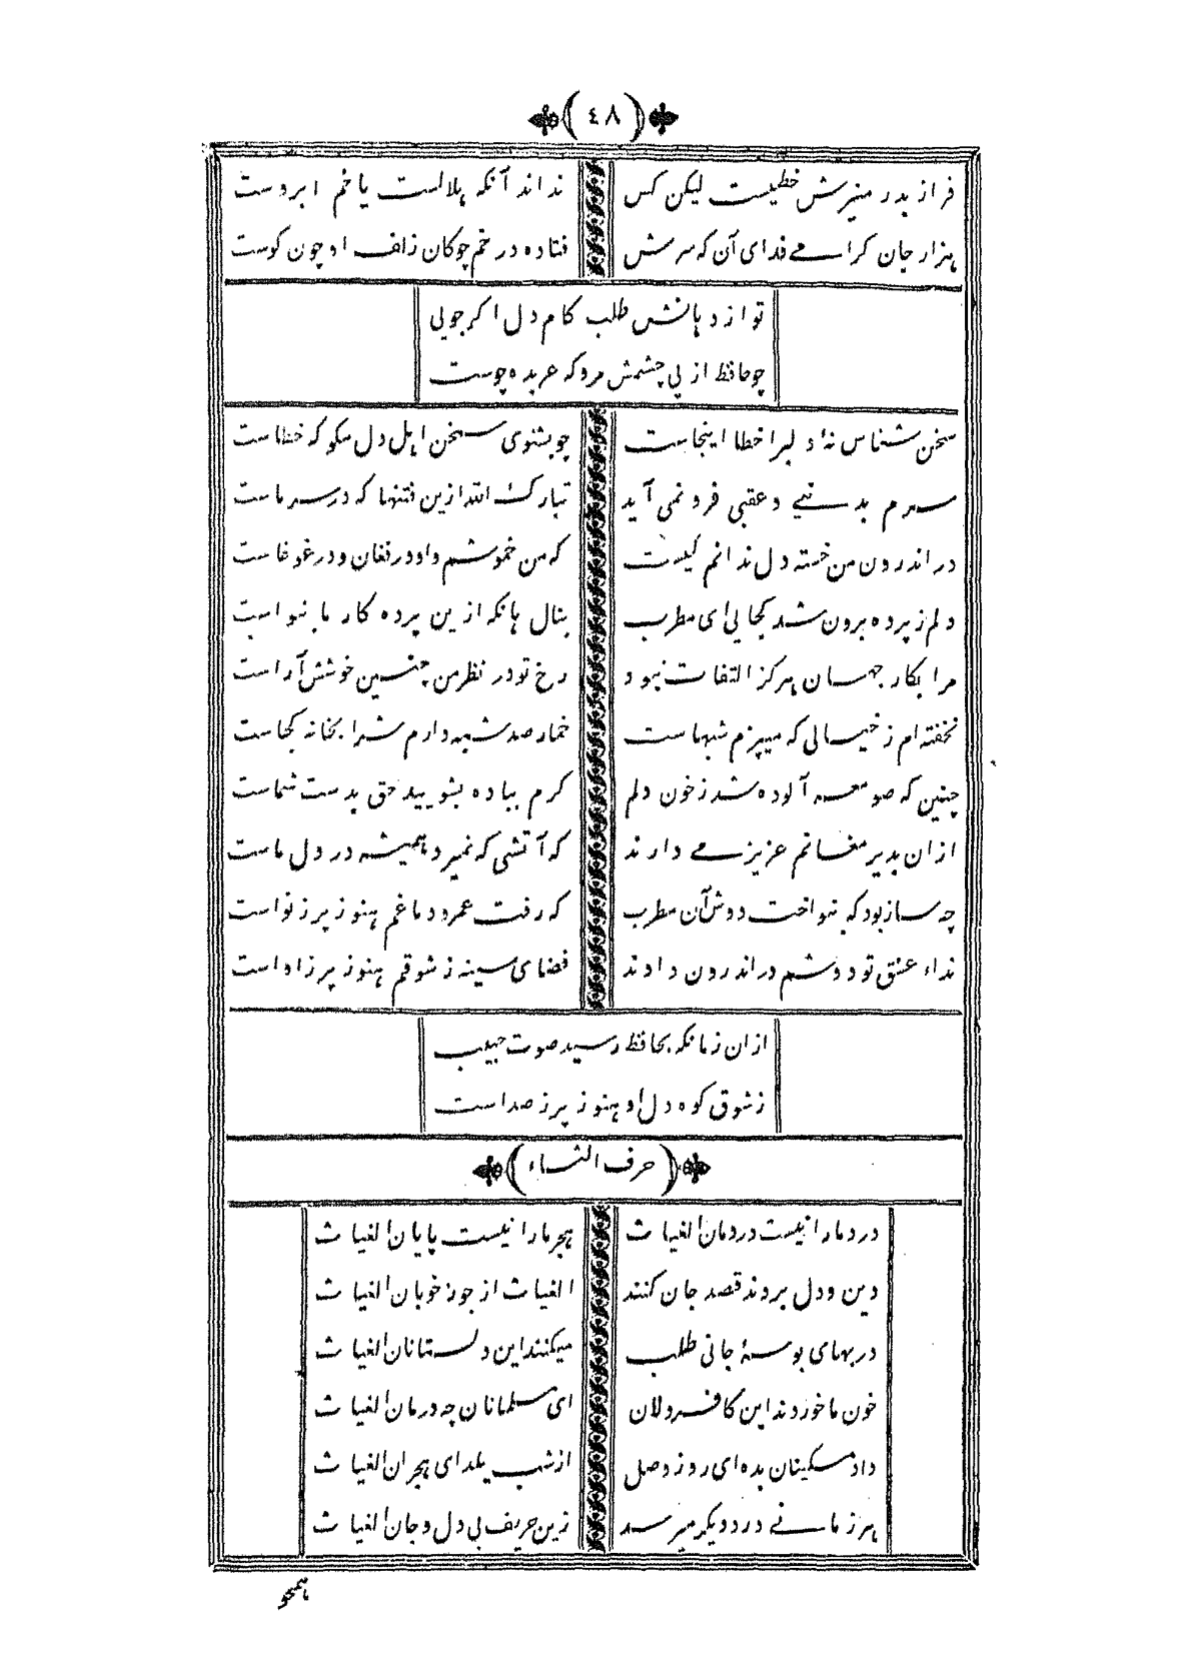 (٤٨)
فراز بدر منیرش خطیست لیکن کس    نداند آنکه هلالست یا خم ابروست
هزار جان کرامے فدای آن که سرش    فتاده در خم چوکان زلف او چون کوست
تو از دهانش طلب کام دل اکر جویی
چو حافظ از پی چشمش مرو که عربده جوست
سخن شناس نهٔ دلبرا خطا اینجاست    چو بشنوی سخن اهل دل مکو که خطاست
سرم بدنیے و عقبی فرو نمی آید    تبارک الله ازین فتنها که در سر ماست
در اندرون من خسته دل ندانم کیست    که من خموشم و او در فغان و در غوغاست
دلم ز پرده برون شد کجایی ای مطرب    بنال هان که ازین پرده کار ما بنواست
مرا بکار جهان هرکز التفات نبود    رخ تو در نظر من چنین خوشش آراست
نخفته ام ز خیالی که میپزم شبهاست    خمار صد شبه دارم شرابخانه کجاست
چنین که صومعه آلوده شد ز خون دلم    کرم بباده بشویید حق بدست شماست
ازان بدیر مغانم عزیز مے دارند    که آتشی که نمیرد همیشه در دل ماست
چه ساز بود که بنواخت دوش آن مطرب    که رفت عمر و دماغم هنوز پر ز نواست
نداء عشق تو دوشم در اندرون دادند    فضای سینه ز شوقم هنوز پر ز اواست
ازان زمانکه بحافظ رسید صوت حبیب
ز شوق کوه دل او هنوز پر ز صداست
(حرف الثاء)
درد ما را نیست درمان الغیاث    هجر ما را نیست پایان الغیاث
دین و دل بردند قصد جان کنند    الغیاث از جور خوبان الغیاث
در بهای بوسهٔ جانی طلب    میکنند این دلستانان الغیاث
خون ما خوردند این کافر دلان    ای مسلمانان چه درمان الغیاث
داد مسکینان بده ای روز وصل    از شب یلدای هجران الغیاث
هر زمانے درد دیکر میرسد    زین حریف بی دل و جان الغیاث
همچو